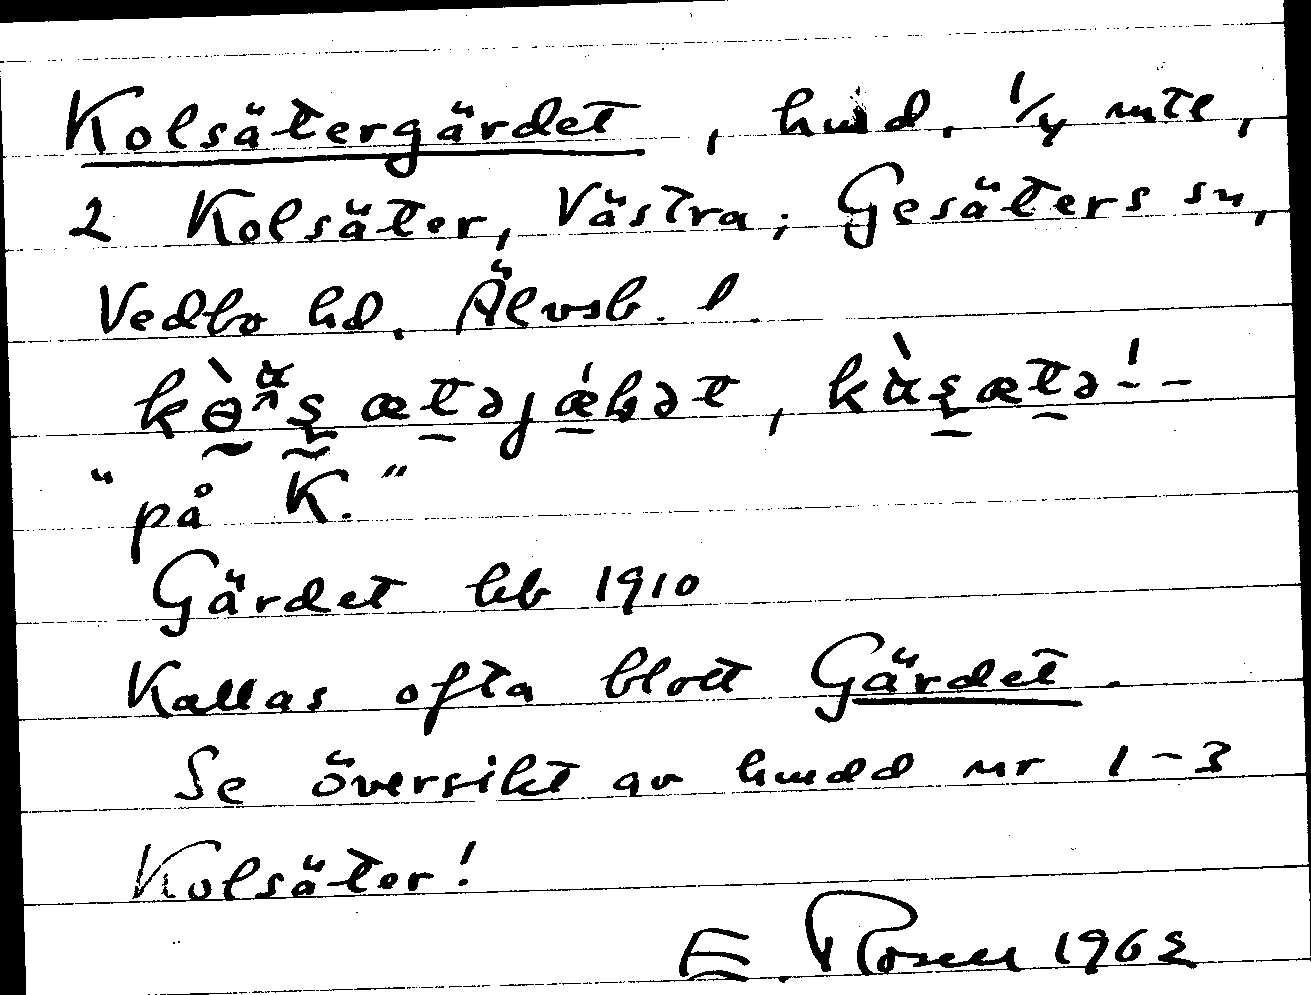 Kolsätergärdet, hmd. 1/4 mtl,
2 Kolsäter, Västra; Gesäters sn,
Vedbo hd. Älvsb. l.
"på K."
Gärdet hb 1910
Kallas ofta blott Gärdet.
Se översikt av hmdd nr 1-3
Kolsäter!
E. Rosell 1962